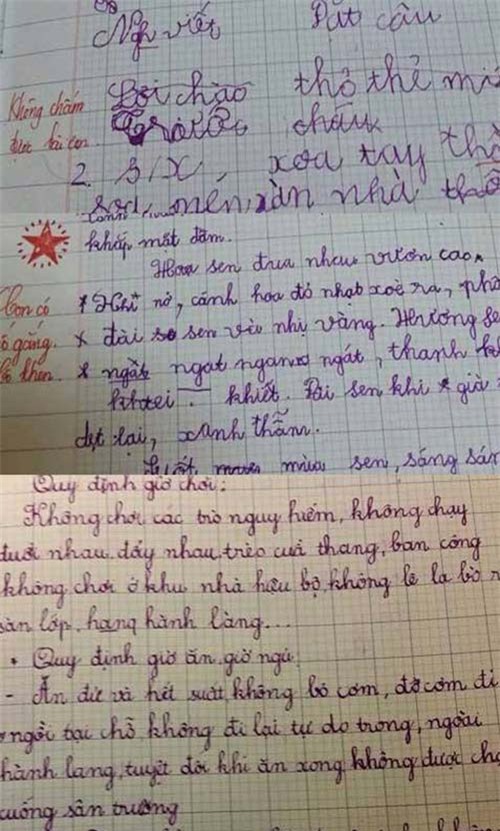 Ngh viết Đặt câu
Không chấm
được bài con.
Lời chào thỏ thẻ
trước cháu
2. s/x, xoa tay
sơn, mên, sàn nhà
khắp mặt đầm.
Hoa sen đua nhau vươn cao.
Con có
cố gắng.
Cô khen.
* Khi nở, cánh hoa đỏ nhạt xoè ra,
* đài so sen và nhị vàng. Hương
* ngát ngat ngan ngát, thanh
khiết. Đài sen khi * già
dẹt lại, xanh thẫm.
mùa sen, sáng
Quy định giờ chơi:
Không chơi các trò nguy hiểm, không chạy
đuổi nhau, đẩy nhau, trèo cầu thang, ban công
không chơi ở khu nhà hiệu bộ, không lê la bò
sàn lớp, hang hành làng...
* Quy định giờ ăn, giờ ngủ
- Ăn đủ và hết suất, không bỏ cơm, đổ cơm đi
ngồi tại chỗ không đi lại tự do trong, ngoài
hành lang, tuyệt đối khi ăn xong không được
xuống sân trường